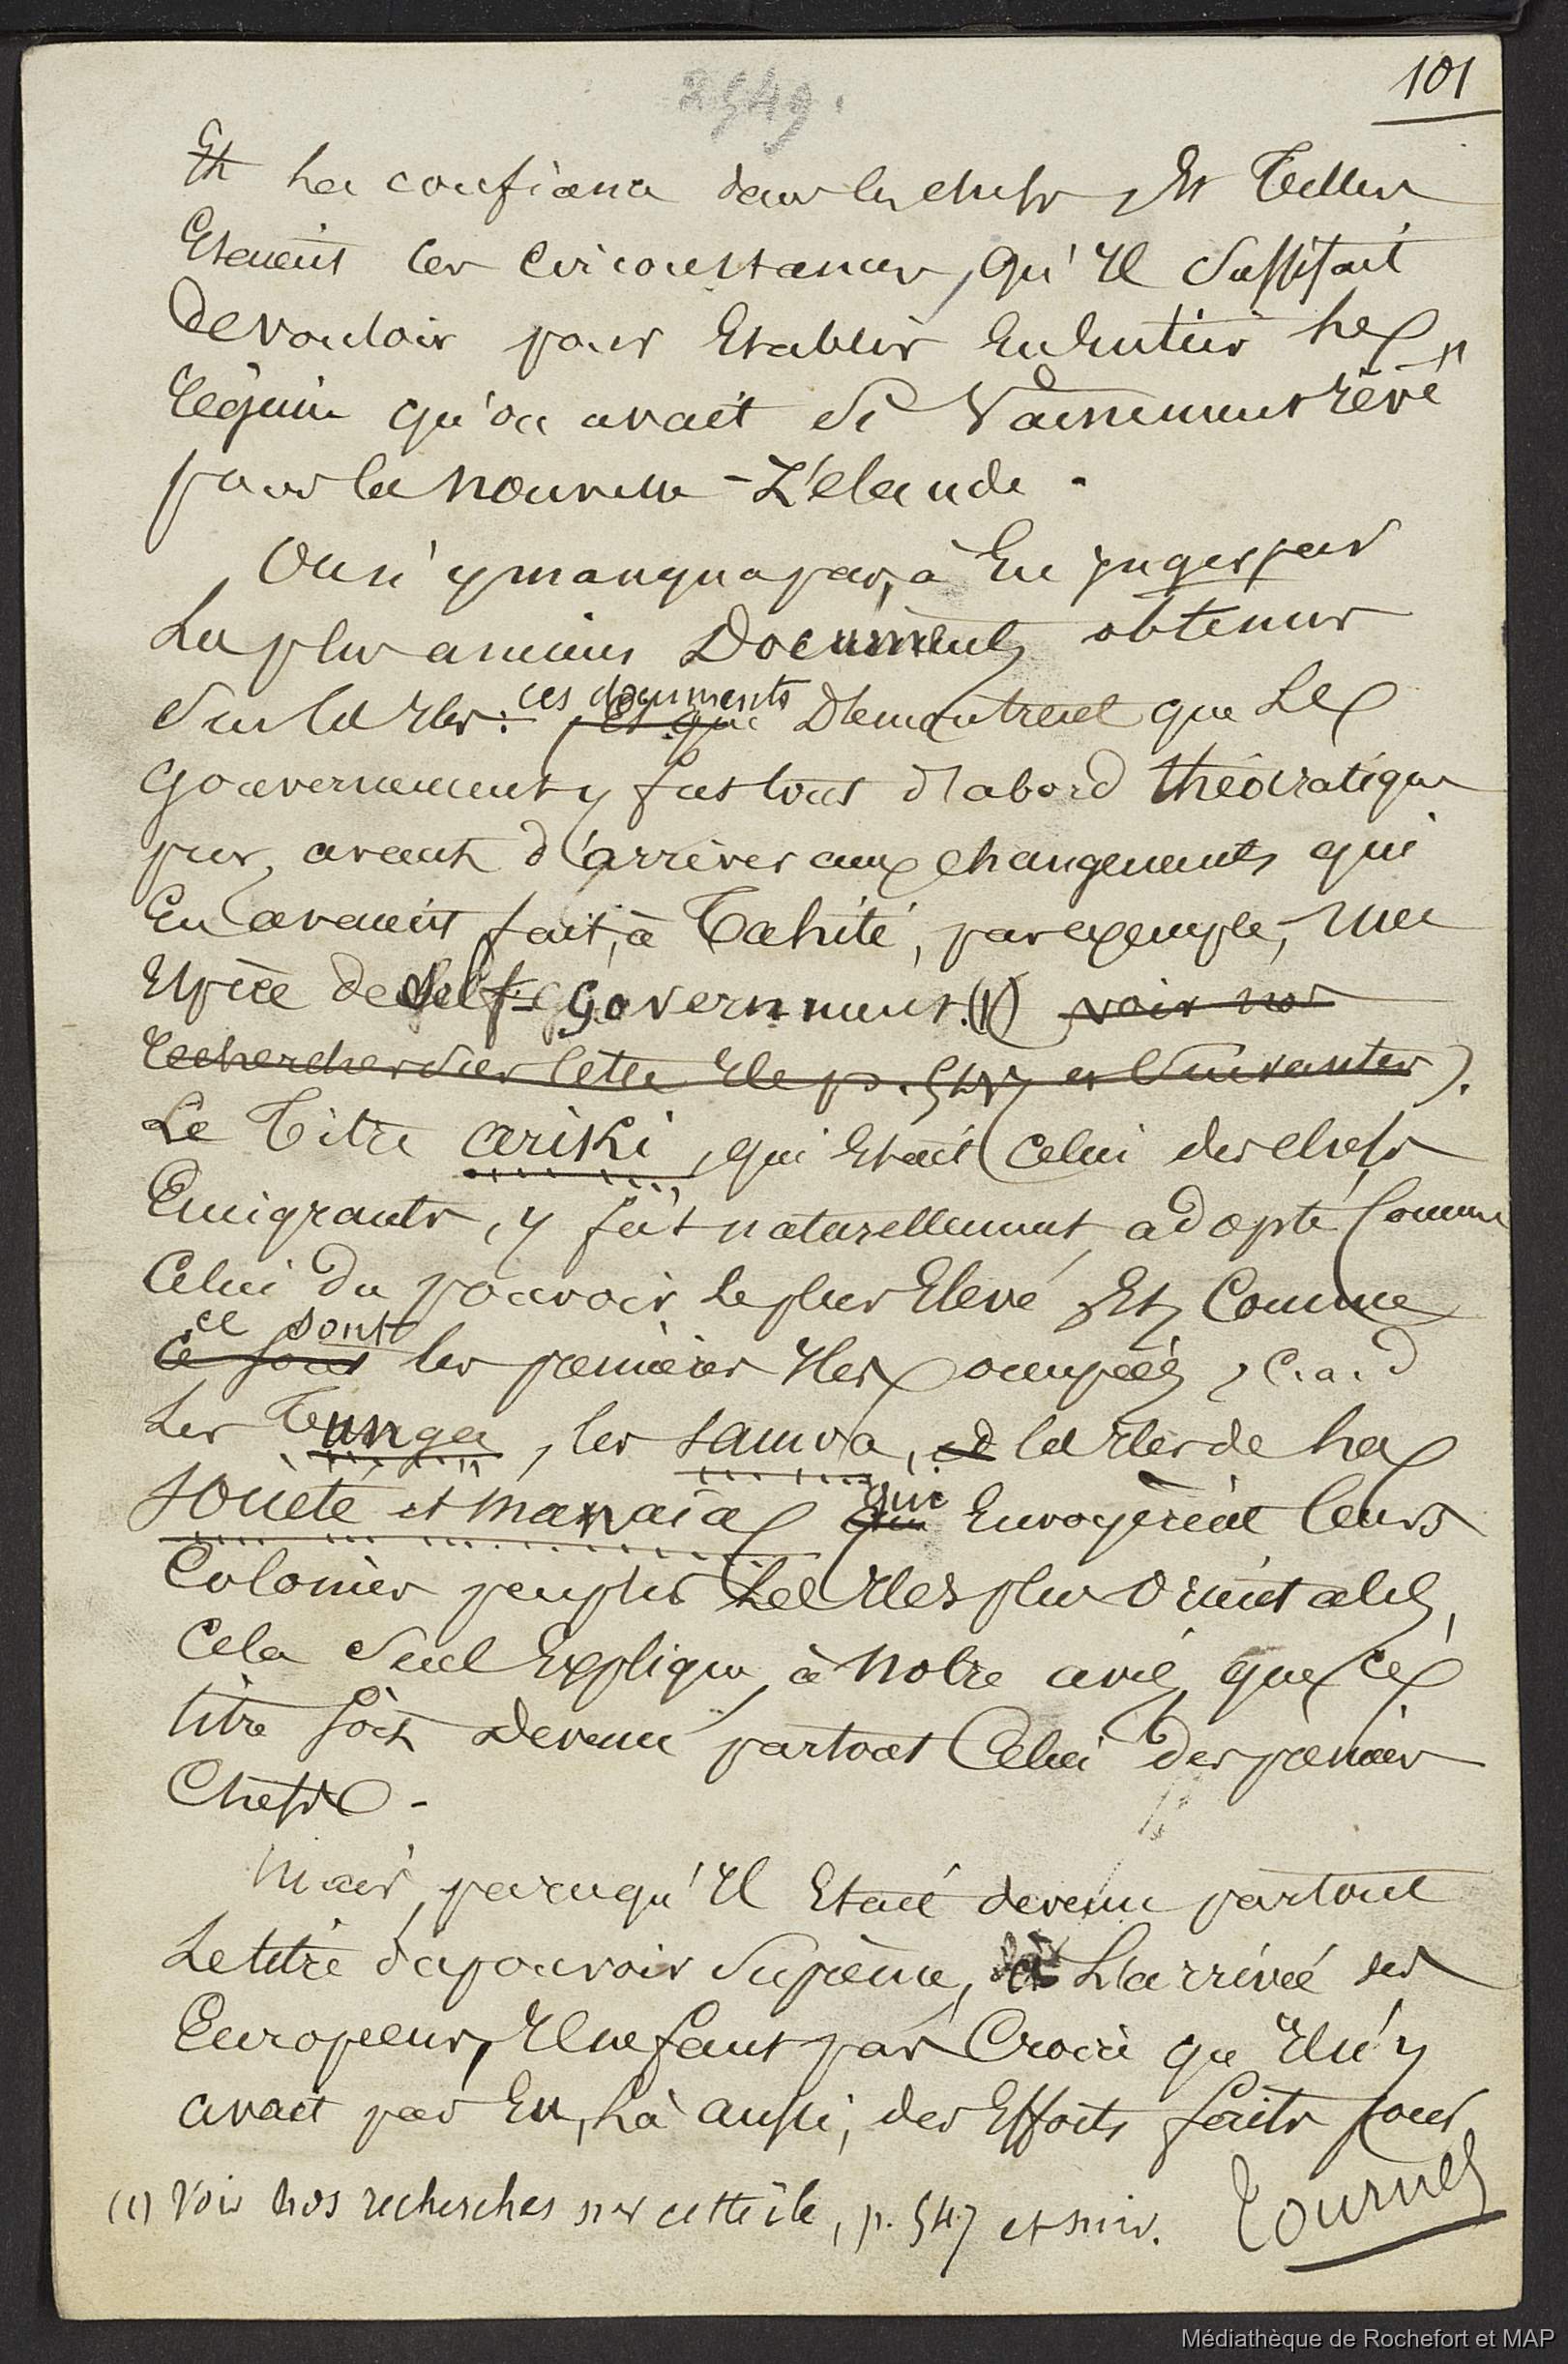 101
2549.
Et la confiance dans les chefs, Et Telles
Etaient les circonstances, qu'Il suffisait
de vouloir pour Etablir En Entier le
régime qu'on avait si Vainement rêvé
pour la nouvelle-Zélande.
On n'y manqua pas, à En juger par
les plus anciens Documents obtenus
sur les Iles: ces documents Démontrent que le
gouvernement y fut tout d'abord théocratique
pur, avant d'arriver aux changements qui
En avaient fait, à Tahiti, par exemple, une
Espèce de self-government.(1) voir nos
recherches sur cette Ile p. 547 et suivantes).
Le Titre ariki, qui Etait celui des chefs
Emigrants, y fut naturellement adopté comme
celui du pouvoir le plus Elevé Et, comme
ce sont
ce sont les premières Iles occupées, c.a.d
les Tunga, les samoa, et les Iles de la
société et manaia qui Envoyèrent leurs
colonies peupler les Iles plus orientales,
cela seul Explique, à notre avis, que ce
titre soit devenu partout celui des premiers
chefs -
mais, parcequ'Il Etait devenu partout
le titre du pouvoir suprême, à l'arrivée des
Européens, Il ne faut pas croire qu'Il n'y
avait pas Eu, là aussi, des Efforts faits pour
(1) Voir nos recherches sur cette île, p. 547 et suiv.
Tournez
Médiathèque de Rochefort et MAP